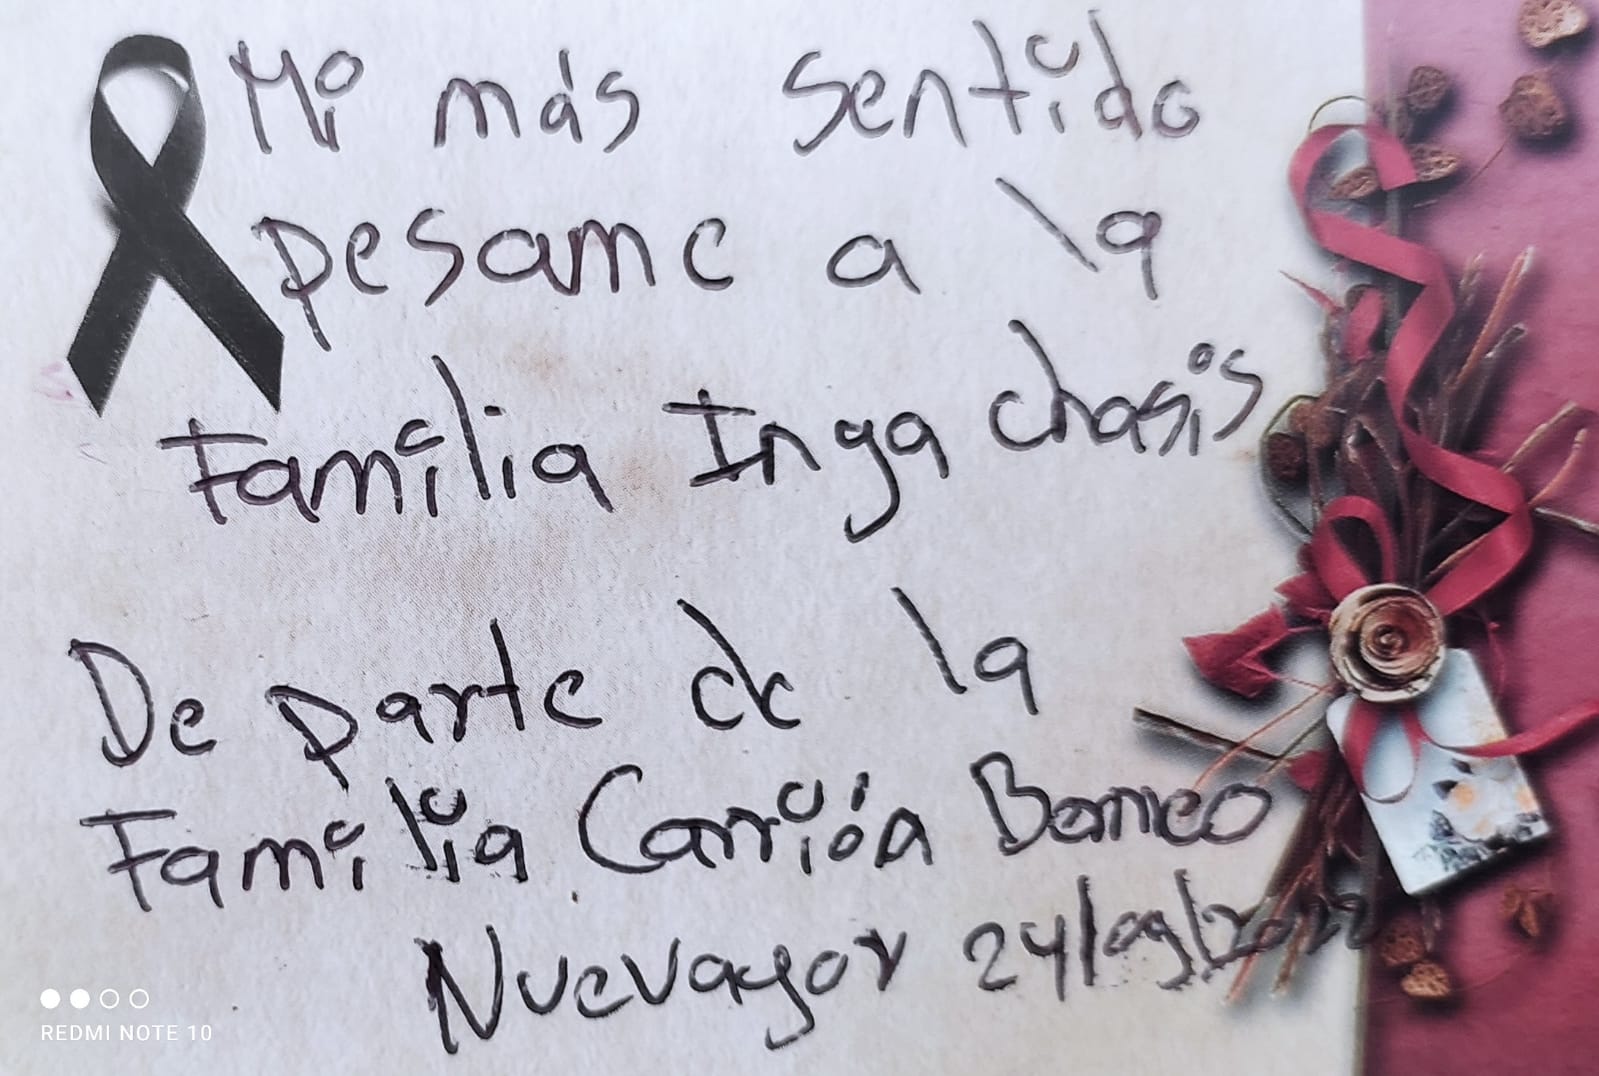 Mi más sentido
pesame a la
Familia Inga chasis
De parte de la
Familia Carrión Borneo
Nuevayor 24/09/2022
REDMI NOTE 10